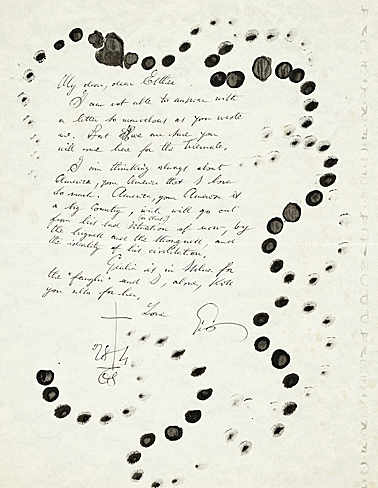 My dear, dear Esther
I am not able to answer with
a letter so marvelous as you wrote
me. But we are sure you
will come here for the Triennale.
I am thinking always about
America, your America that I love
so much. America, your America is
a big country, will go out
(in that)
from his bad situation of now, by
the bigness and the strongness, and
the ideality of his civilitation.
Giulia is in Milan for
the "famiglia" and I, alone, kiss
you also for her,
Love
28 4
68